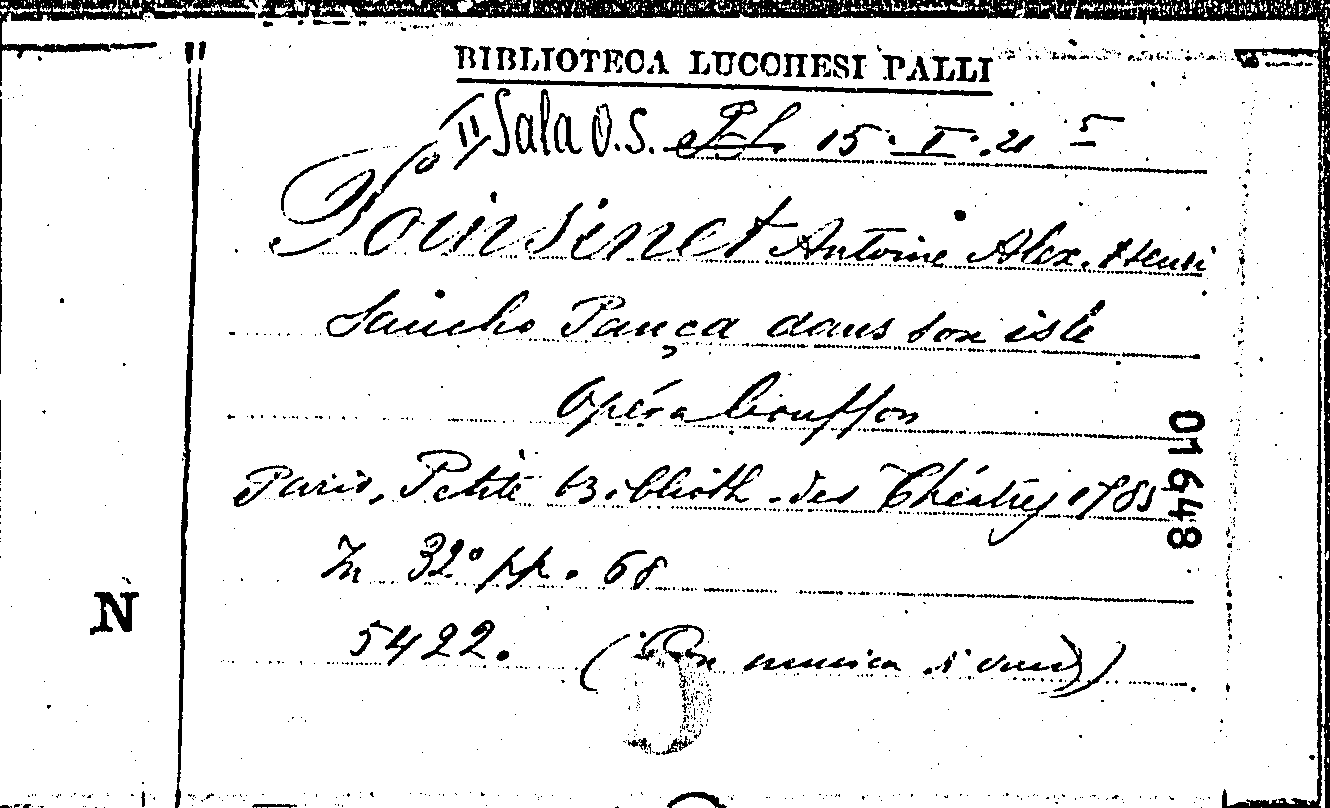 BIBLIOTECA LUCCHESI PALLI
II Sala O.S. P.L. 15. I. 21 5
Poinsinet Antoine Alex. Henri
Sancho Pança dans son isle
Opéra bouffon
Paris, Petite Biblioth. des Théatres 1785
In 32° pp. 68
5422. (Con musica
N
01648